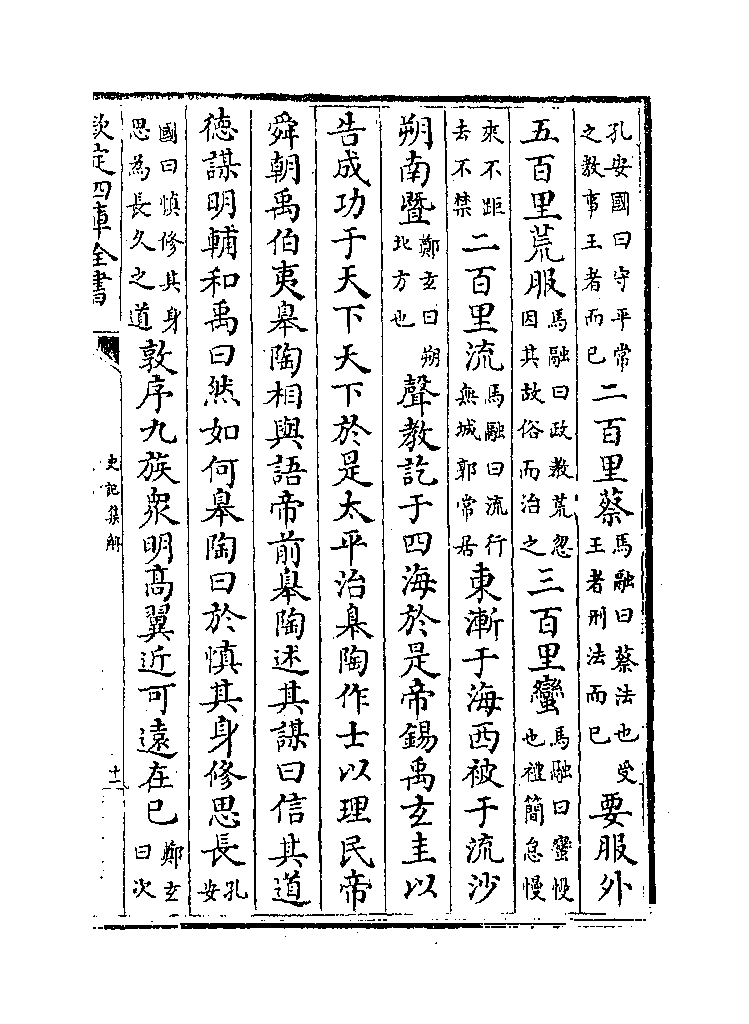 孔安國曰守平常之教事王者而已二百里蔡馬融曰蔡法也受王者刑法而已要服外
五百里荒服馬融曰政教荒忽因其故俗而治之三百里蠻馬融曰蠻慢也禮簡怠慢
來不距去不禁二百里流馬融曰流行無城郭常居東漸于海西被于流沙
朔南暨鄭玄曰朔北方也聲教訖于四海於是帝錫禹玄圭以
告成功于天下天下於是太平治臯陶作士以理民帝
舜朝禹伯夷臯陶相與語帝前臯陶述其謀曰信其道
德謀明輔和禹曰然如何臯陶曰於慎其身修思長孔安
國曰慎修其身思為長久之道敦序九族衆明高翼近可遠在已鄭玄曰次
欽定四庫全書
史記集解
十二